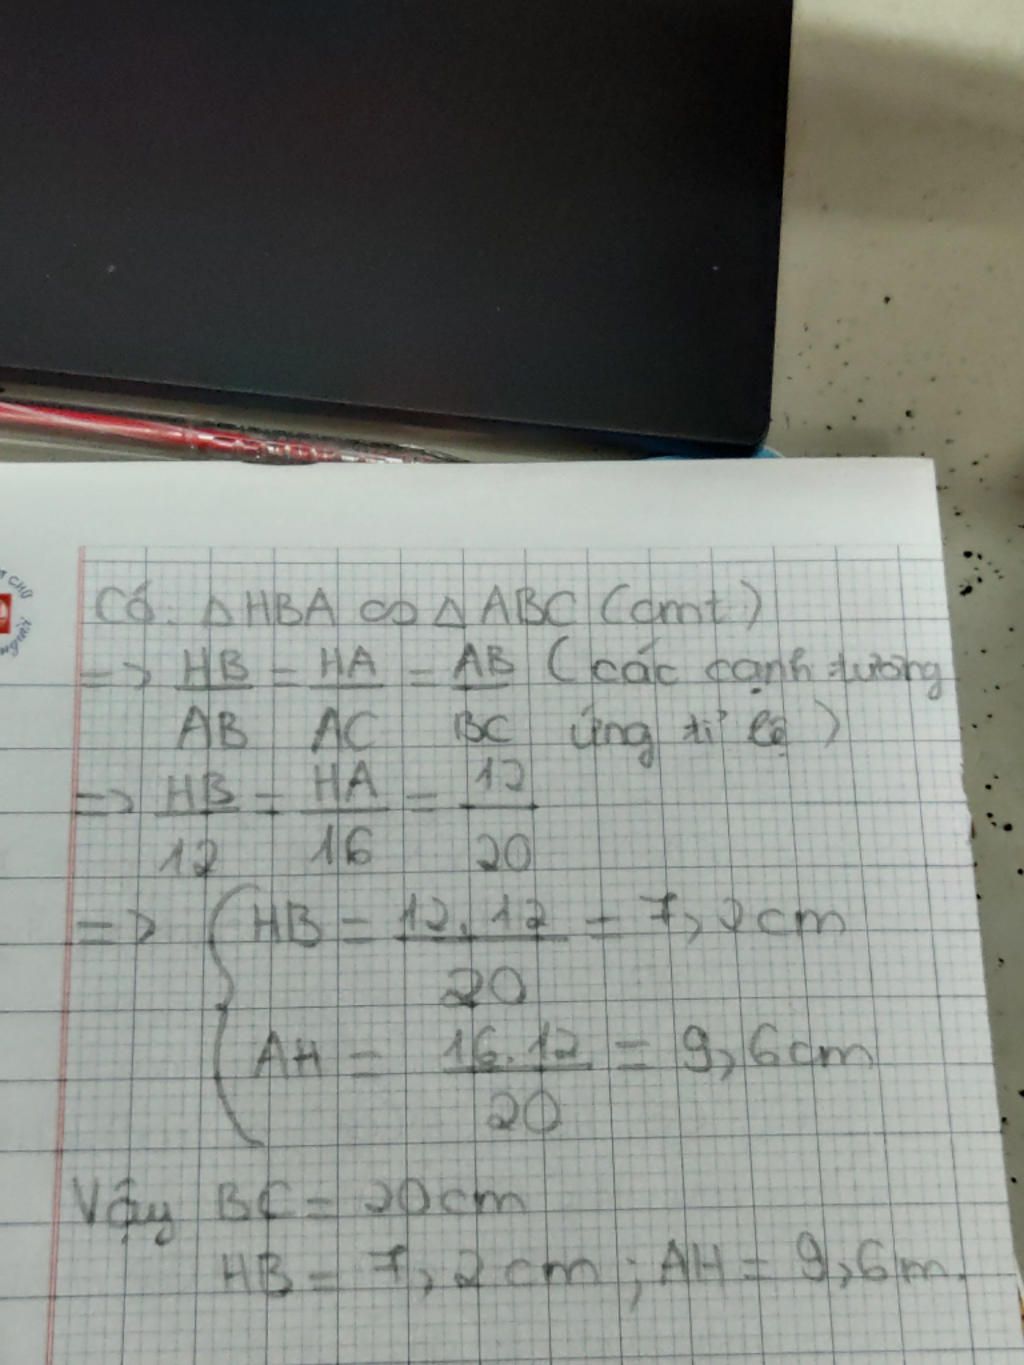 Có. △HBA ∽ △ABC (cmt)
=> HB/AB = HA/AC = AB/BC (các cạnh tương
ứng tỉ lệ)
=> HB/12 = HA/16 = 12/20
=> { HB = 12.12/20 = 7,2cm
AH = 16.12/20 = 9,6cm
Vậy BC = 20cm
HB = 7,2cm ; AH = 9,6m.